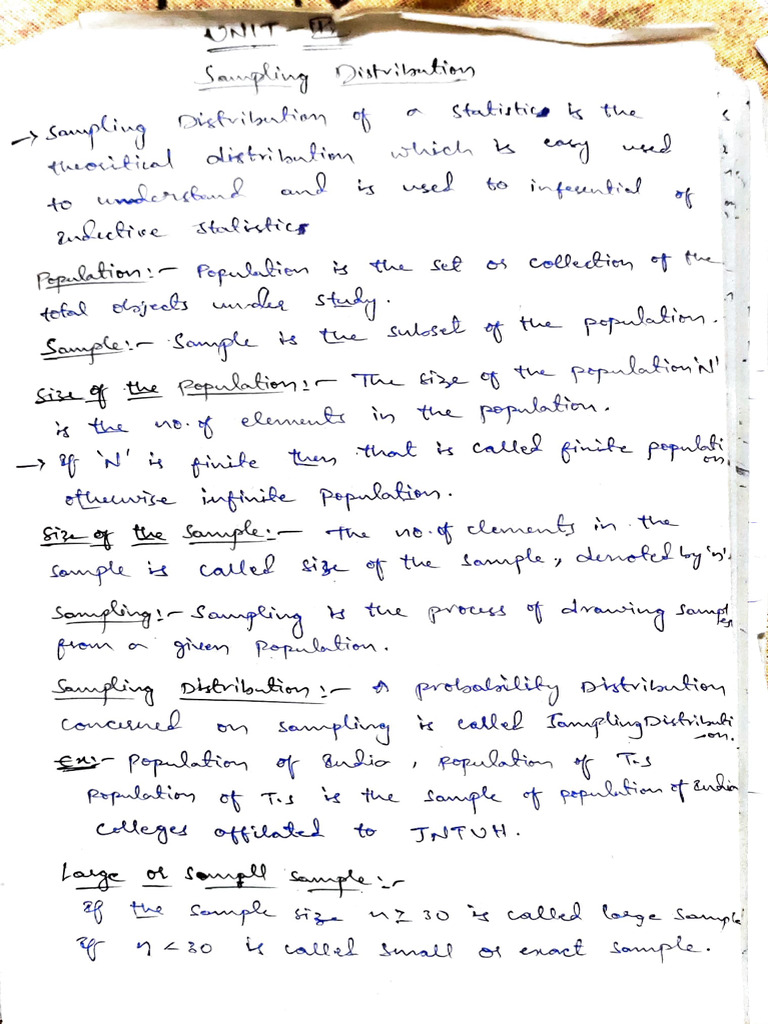 UNIT - III
Sampling Distribution
→ Sampling Distribution of a statistics is the
theoritical distribution which is easy used
to understand and is used to inferential of
Inductive statistics
Population:- Population is the set or collection of the
total objects under study.
Sample:- Sample is the subset of the population.
Size of the Population:- The size of the population 'N'
is the no. of elements in the population.
→ If 'N' is finite then that is called finite population
otherwise infinite population.
Size of the Sample:- The no. of elements in the
sample is called size of the sample, denoted by 'n'.
Sampling:- Sampling is the process of drawing samples
from a given population.
Sampling Distribution:- A probability Distribution
concerned on sampling is called Sampling Distribution.
Ex:- Population of India, population of T.S
Population of T.S is the sample of population of India
colleges affilated to JNTUH.
Large or Sampll sample:-
If the sample size n ≥ 30 is called large sample
If n < 30 is called small or exact sample.